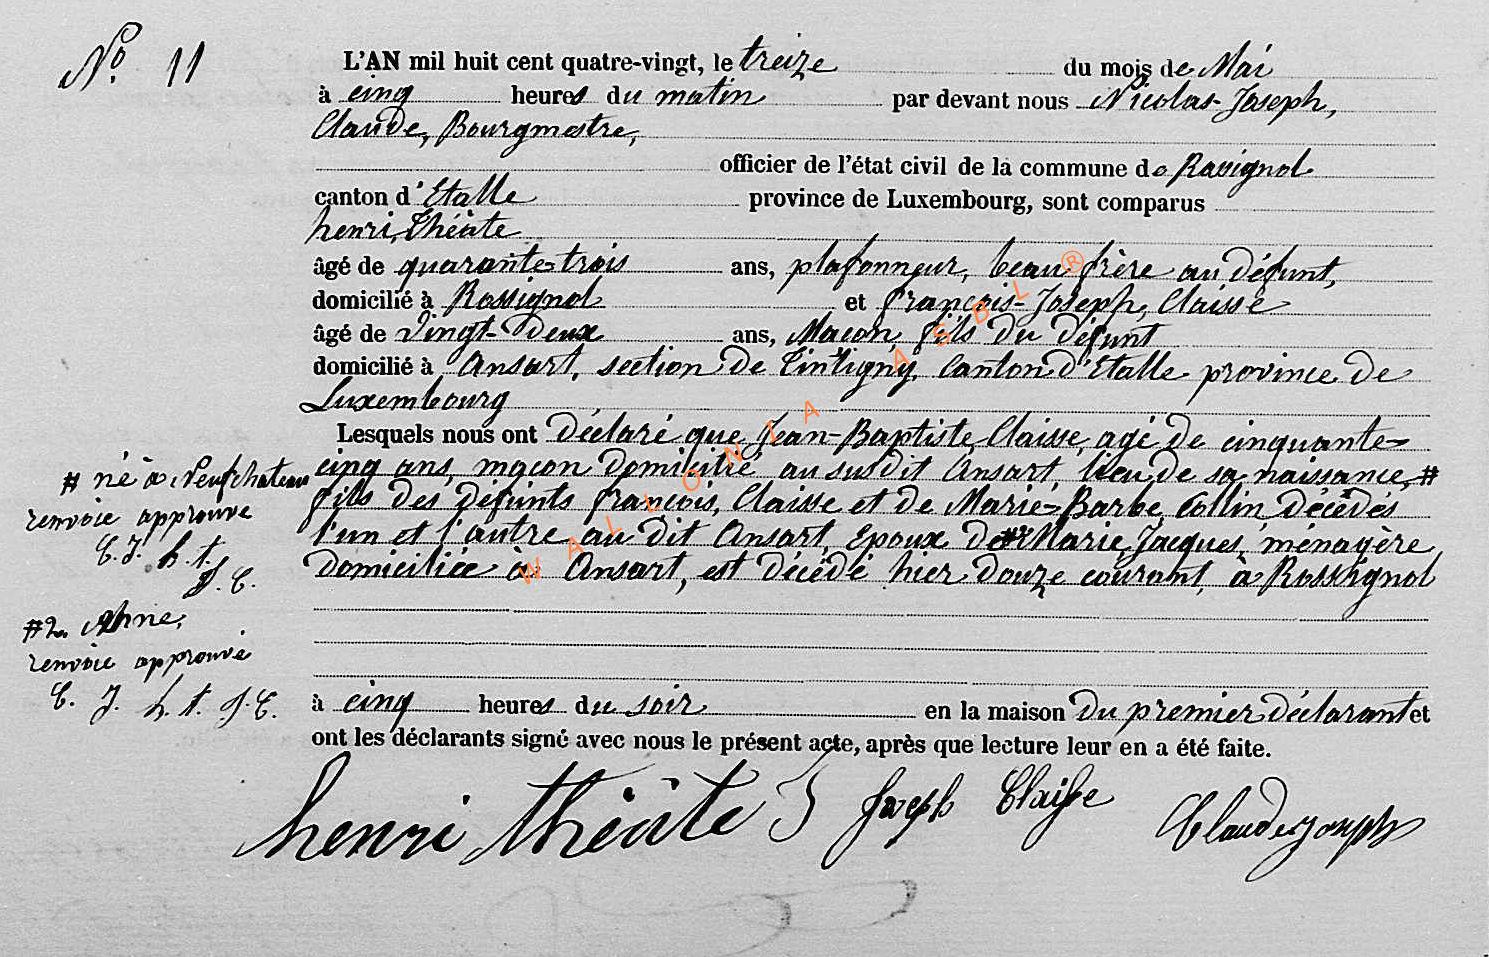 Nº 11
L'AN mil huit cent quatre-vingt, le treize du mois de Mai
à cinq heures du matin par devant nous Nicolas-Joseph,
Claude, Bourgmestre,
officier de l'état civil de la commune de Rossignol
canton d'Etalle province de Luxembourg, sont comparus
henri, Théâte
âgé de quarante-trois ans, plafonneur, beau frère au défunt,
domicilié à Rossignol et françois-Joseph, Claisse
âgé de vingt-deux ans, Macon, fils du défunt
domicilié à Ansart, section de Tintigny, Canton d'Etalle province de
Luxembourg
Lesquels nous ont déclaré que Jean-Baptiste, Claisse, agé de cinquante-
cinq ans, maçon domicilié au susdit Ansart, lieu de sa naissance, #
fils des défunts françois, Claisse et de Marie-Barbe, Collin décédés
l'un et l'autre au dit Ansart, Epoux de #2 Marie, Jacques, ménagère
domiciliée à Ansart, est décédé hier douze courant, à Rossignol
# né à Neufchateau
renvoie approuvé
C. J. h. t.
J. C.
#2 Anne,
renvoie approuvé
C. J. h. t. J. C.
à cinq heures du soir en la maison du premier déclarant et
ont les déclarants signé avec nous le présent acte, après que lecture leur en a été faite.
henri théâte J Joseph Claisse Claude Joseph
WALLONIA ASBL ®